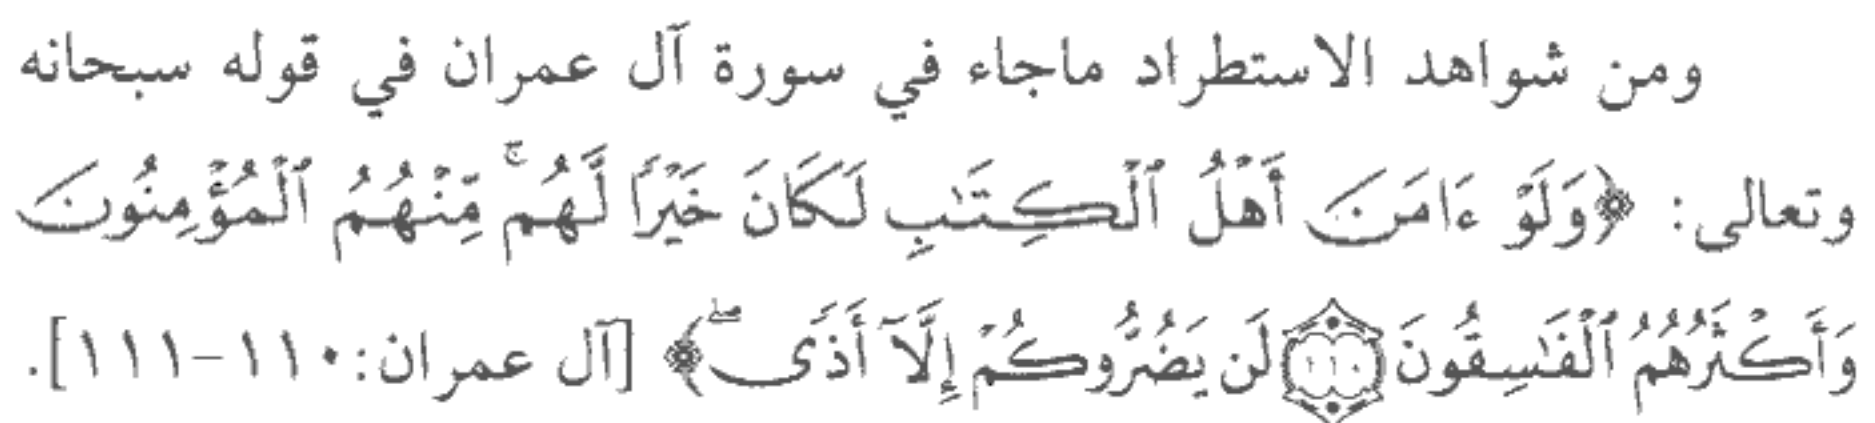 ومن شواهد الاستطراد ماجاء في سورة آل عمران في قوله سبحانه
وتعالى: ﴿وَلَوْ ءَامَنَ أَهْلُ ٱلْكِتَٰبِ لَكَانَ خَيْرًا لَّهُمۚ مِّنْهُمُ ٱلْمُؤْمِنُونَ
وَأَكْثَرُهُمُ ٱلْفَٰسِقُونَ ۝١١٠ لَن يَضُرُّوكُمْ إِلَّآ أَذًىۖ﴾ [آل عمران:١١٠-١١١].